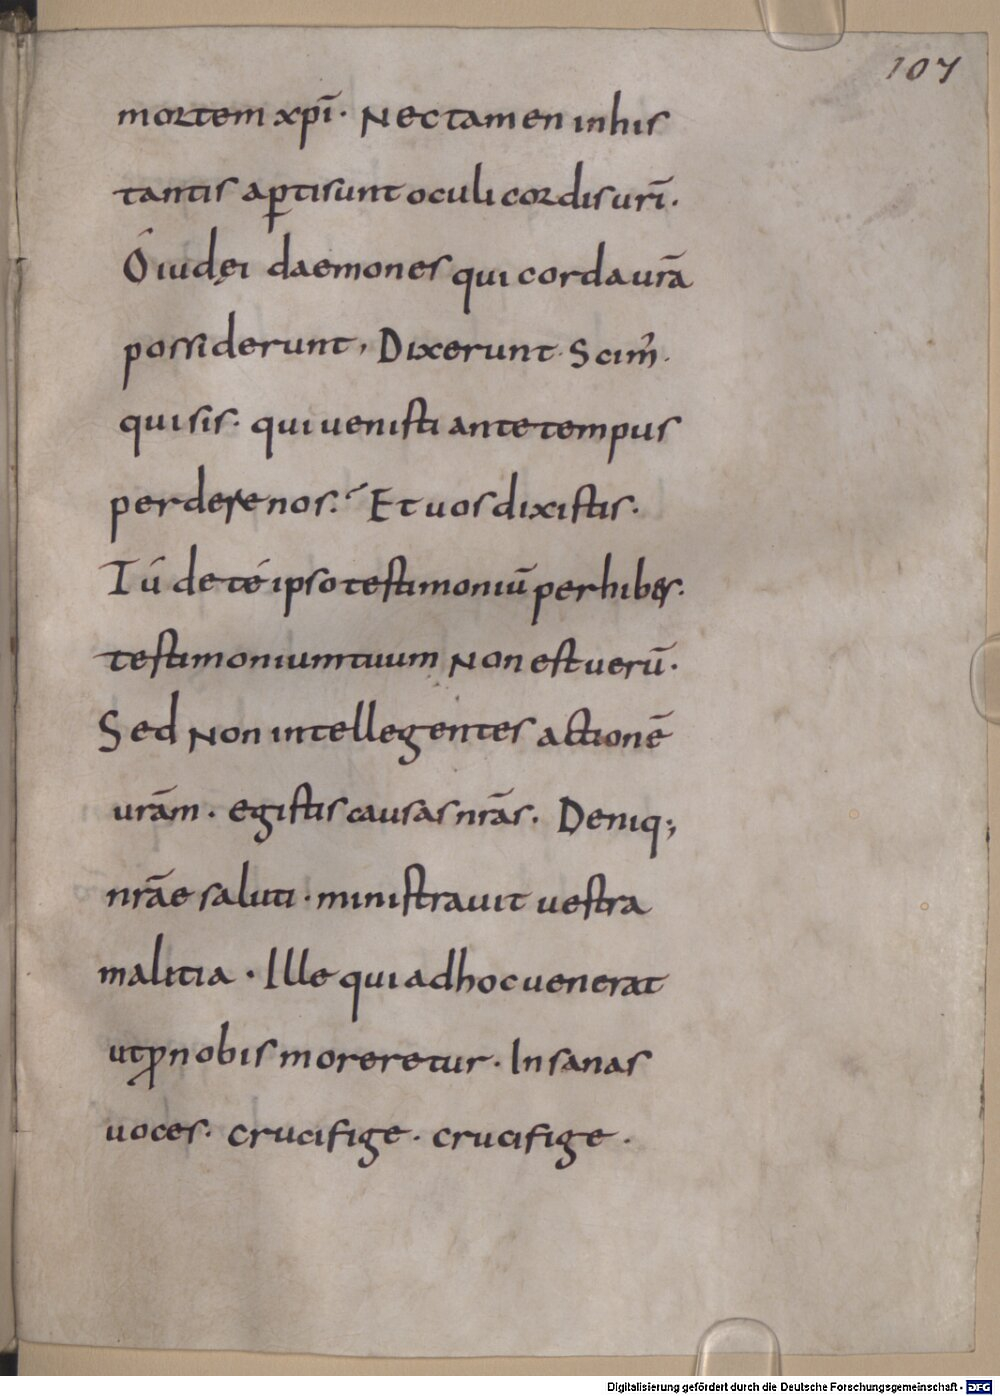 107
mortem xpī. Nec tamen in his
tantis aꝑti sunt oculi cordis urī.
Ó iudęi daemones qui corda urā
possiderunt, Dixerunt. Scim̄.
qui sis. qui uenisti ante tempus
perdere nos. Et uos dixistis.
Tú de té ipso testimoniū perhibes.
testimonium tuum Non est uerū.
Sed Non intellegentes actionē
urām. egistis causas nrās. Deniq;
nrāe saluti. ministrauit uestra
malitia. Ille qui ad hoc uenerat
ut ꝓ nobis moreretur. Insanas
uoces. crucifige. crucifige.
Digitalisierung gefördert durch die Deutsche Forschungsgemeinschaft - DFG